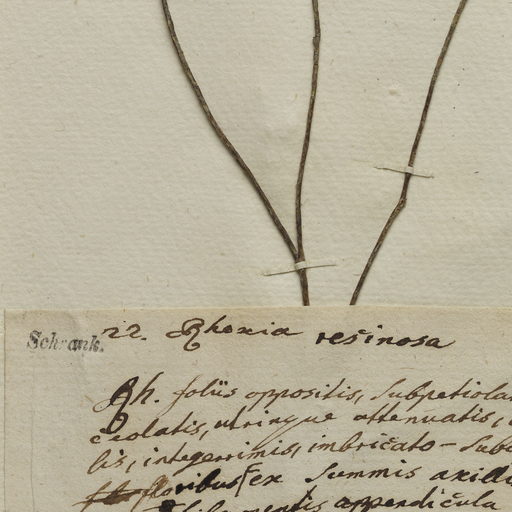 Schrank.
22. Rhexia resinosa
Rh. foliis oppositis, subpetiola
ceolatis, utrinque attenuatis,
lis, integerrimis, imbricato-sub
floribus ex summis axilli
filamentis appendicula